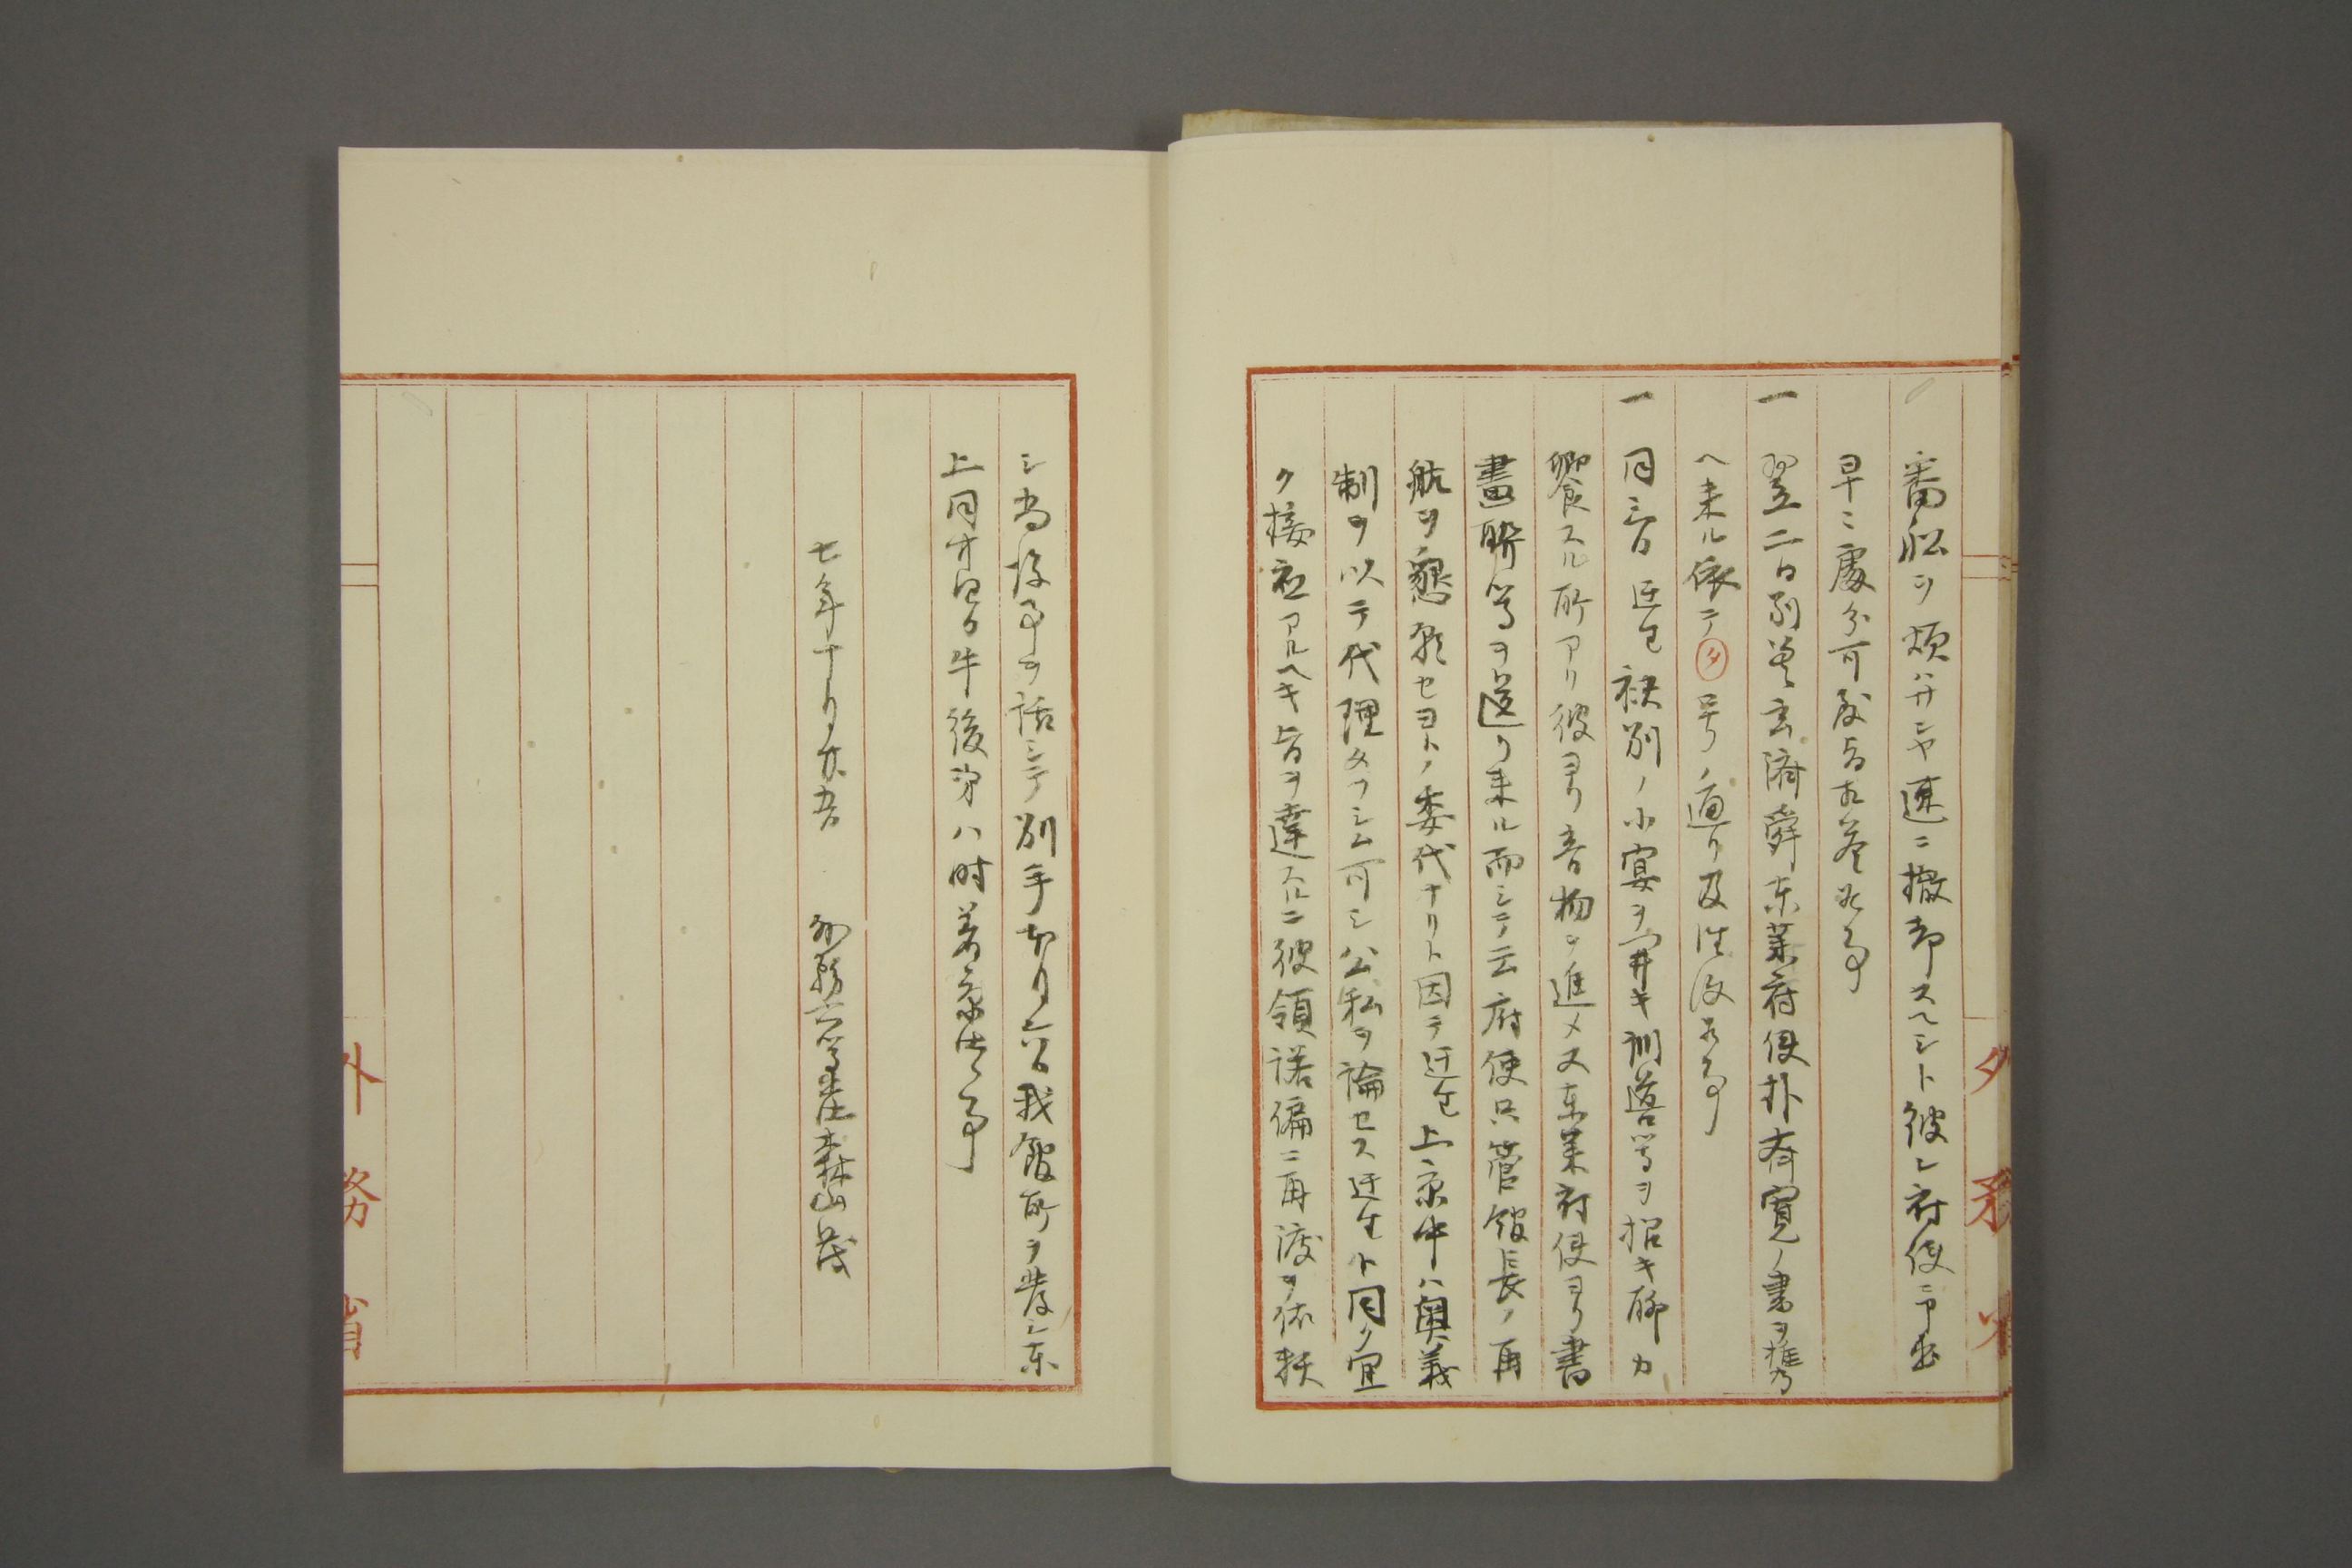 番船ヲ煩ハサンヤ速ニ撤却スヘシト彼レ府使ニ申出
早ニ處分可致旨相答候事
一 翌二日別差玄濟舜東萊府使朴齊寛ノ書ヲ携
ヘ来ル依テ㋟号ノ通リ及往復候事
一 同三日迂生袂別ノ小宴ヲ開キ訓導等ヲ招キ聊カ
饗スル所アリ彼ヨリ音物ヲ進メ又東萊府使ヨリ書
畫聯等ヲ送リ来ル而シテ云府使只管館長ノ再
航ヲ懇願セヨトノ委代ナリト因テ迂生上京中ハ奥義
制ヲ以テ代理タラシム可シ公私ヲ論セス迂生ト同ク宜
ク接遇アルヘキ旨ヲ達スルニ彼領諾偏ニ再渡ヲ依頼
シ尚後事ヲ話シテ別手本月六日我館所ヲ發シ東
上同廿四日午後第八時着京仕候事
七年十月廿五日
外務六等出仕森山茂
外務省